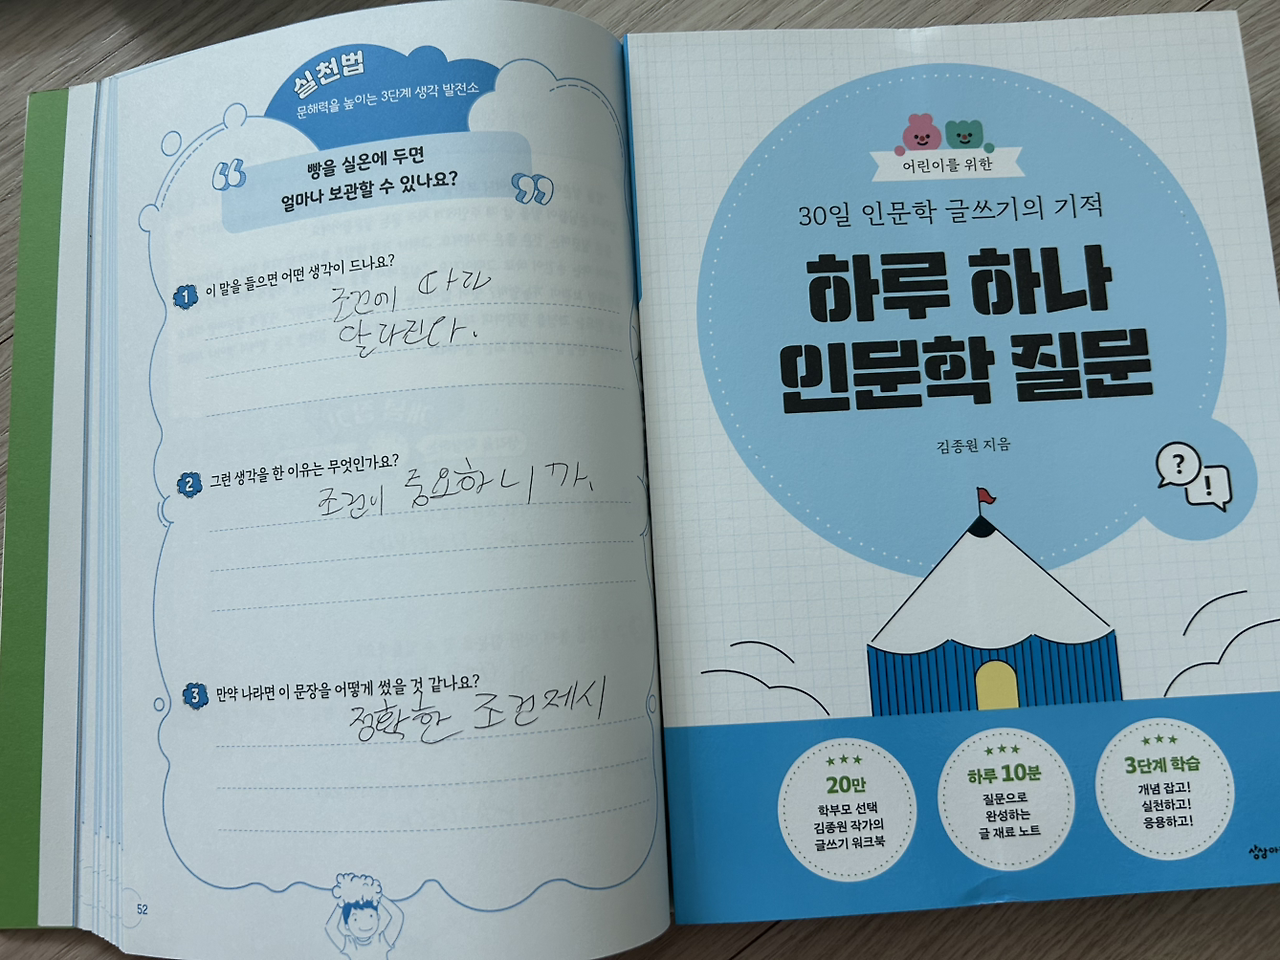 실천법
문해력을 높이는 3단계 생각 발전소
“
빵을 실온에 두면
얼마나 보관할 수 있나요?
”
1 이 말을 들으면 어떤 생각이 드나요?
조건에 따라
달라진다.
2 그런 생각을 한 이유는 무엇인가요?
조건이 중요하니까.
3 만약 나라면 이 문장을 어떻게 썼을 것 같나요?
정확한 조건제시
52
어린이를 위한
30일 인문학 글쓰기의 기적
하루 하나
인문학 질문
김종원 지음
?
!
20만
학부모 선택
김종원 작가의
글쓰기 워크북
하루 10분
질문으로
완성하는
글 재료 노트
3단계 학습
개념 잡고!
실천하고!
응용하고!
상상아